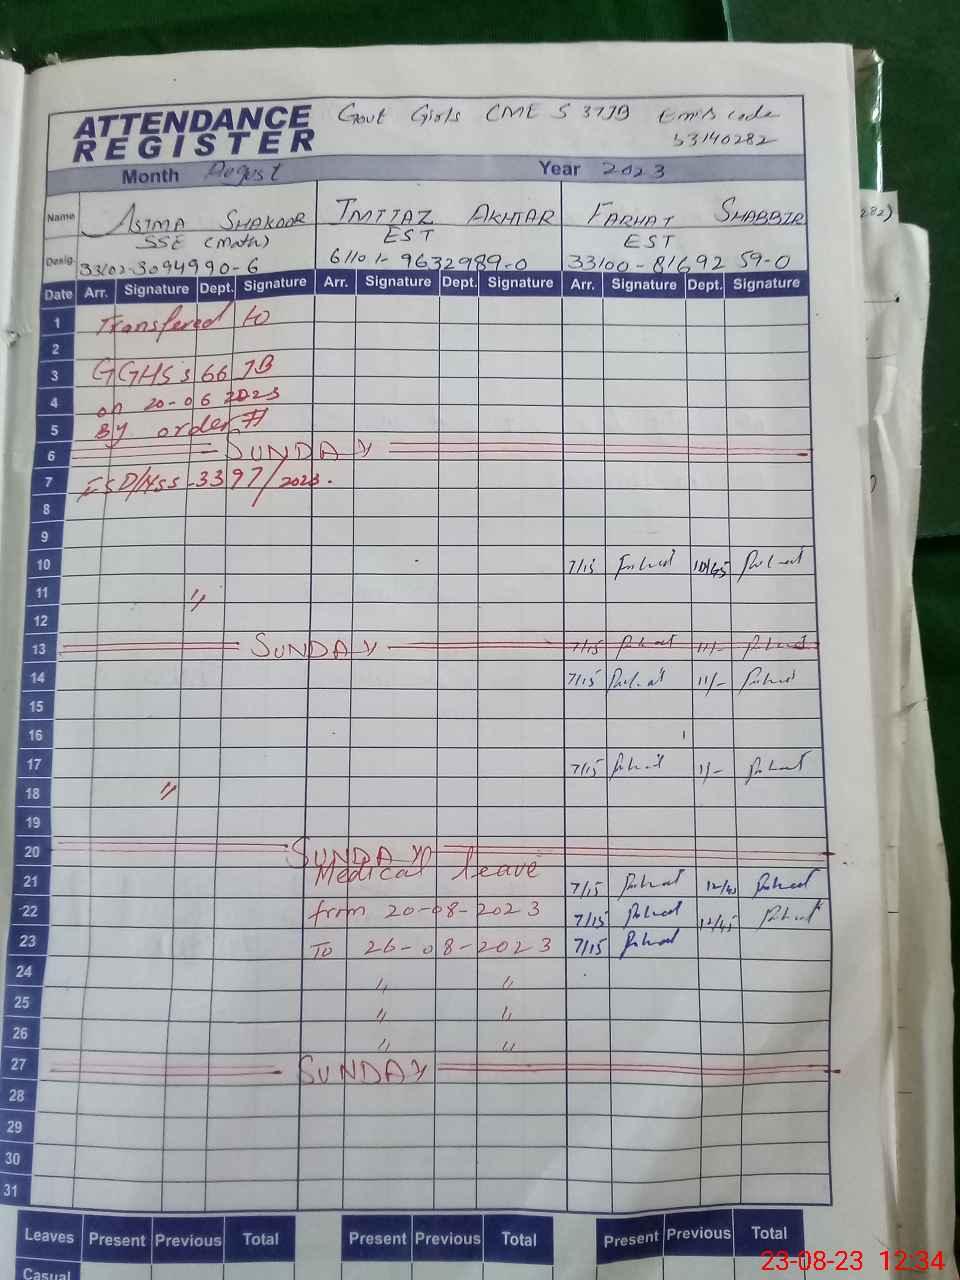 ATTENDANCE REGISTER
Govt Girls CME S 37JB Emis code
33140282
Month August Year 2023
Name ASIMA SHAKOOR IMTIAZ AKHTAR FARHAT SHABBIR
SSE (Math) EST EST
Desig. 33102-3094990-6 61101-9632989-0 33100-8169259-0
Date Arr. Signature Dept. Signature Arr. Signature Dept. Signature Arr. Signature Dept. Signature
1 Transfered to
2
3 GGHSs 66 JB
4 on 20-06 2023
5 By order #
6 SUNDAY
7 3397/2023.
8
9
10 7/15 Farhat 10/45 Farhat
11 "
12
13 SUNDAY 7/15 Farhat 11/- Farhat
14 7/15 Farhat 11/- Farhat
15
16
17 7/15 Farhat 11/- Farhat
18 "
19
20 SUNDAY
21 Medical leave 7/15 Farhat 12/45 Farhat
22 from 20-08-2023 7/15 Farhat 12/45 Farhat
23 To 26-08-2023 7/15 Farhat
24 " "
25 " "
26 " "
27 SUNDAY
28
29
30
31
Leaves Present Previous Total Present Previous Total Present Previous Total
Casual
282)
23-08-23 12:34